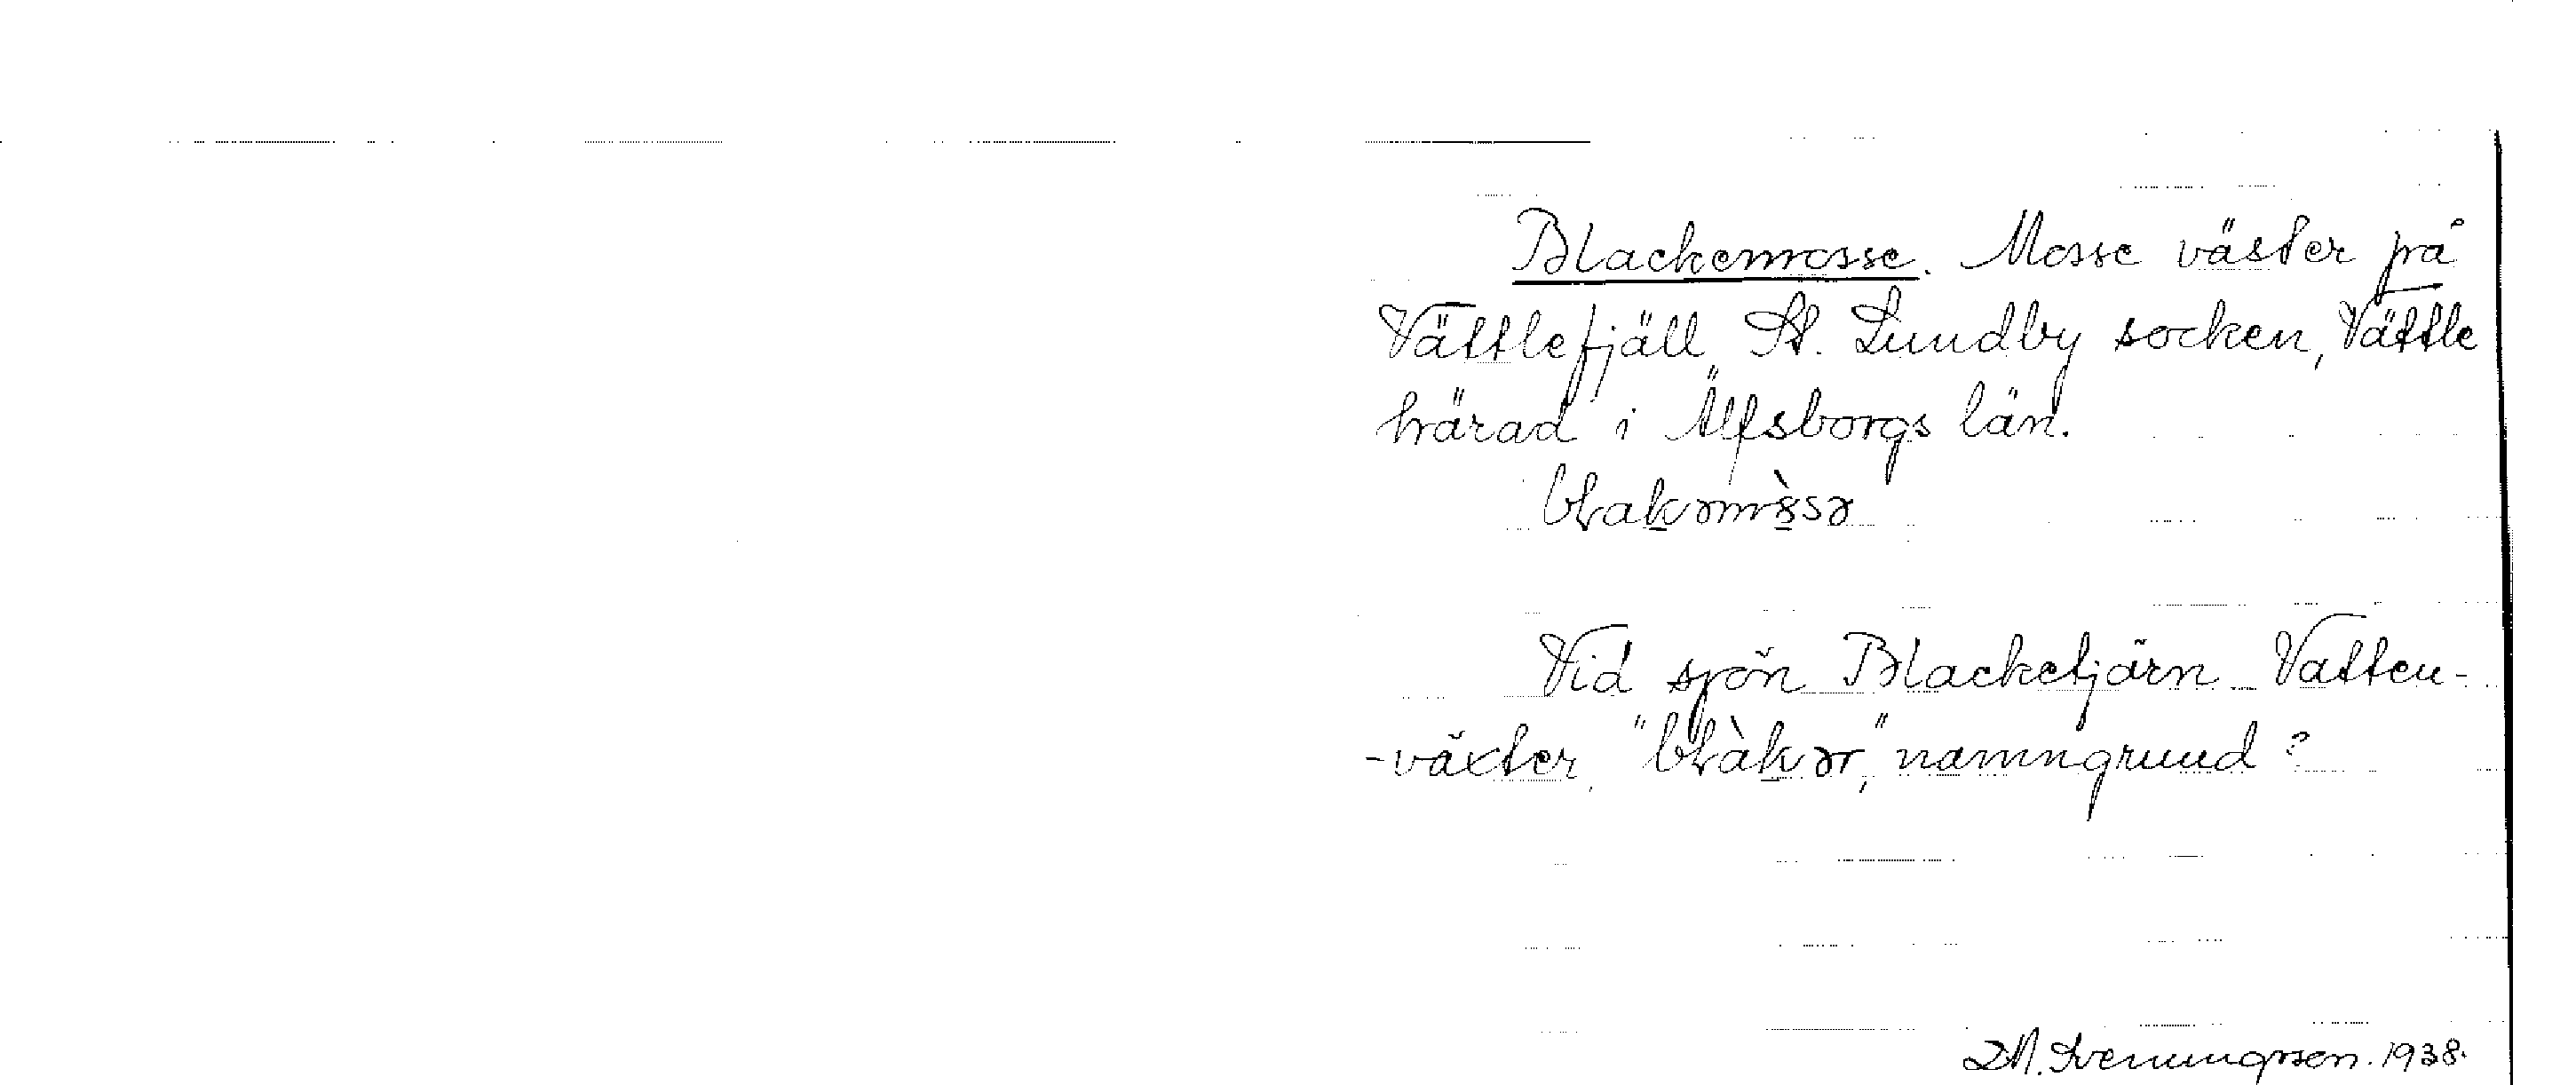 Blackemosse. Mosse väster på
Vättlefjäll, St. Lundby socken, Vättle
härad i Älfsborgs län.
bɫakəmòsə
Vid sjön Blacketjärn. Vatten-
-växter, "bɫàkər," namngrund?
Svenungsson. 1938.